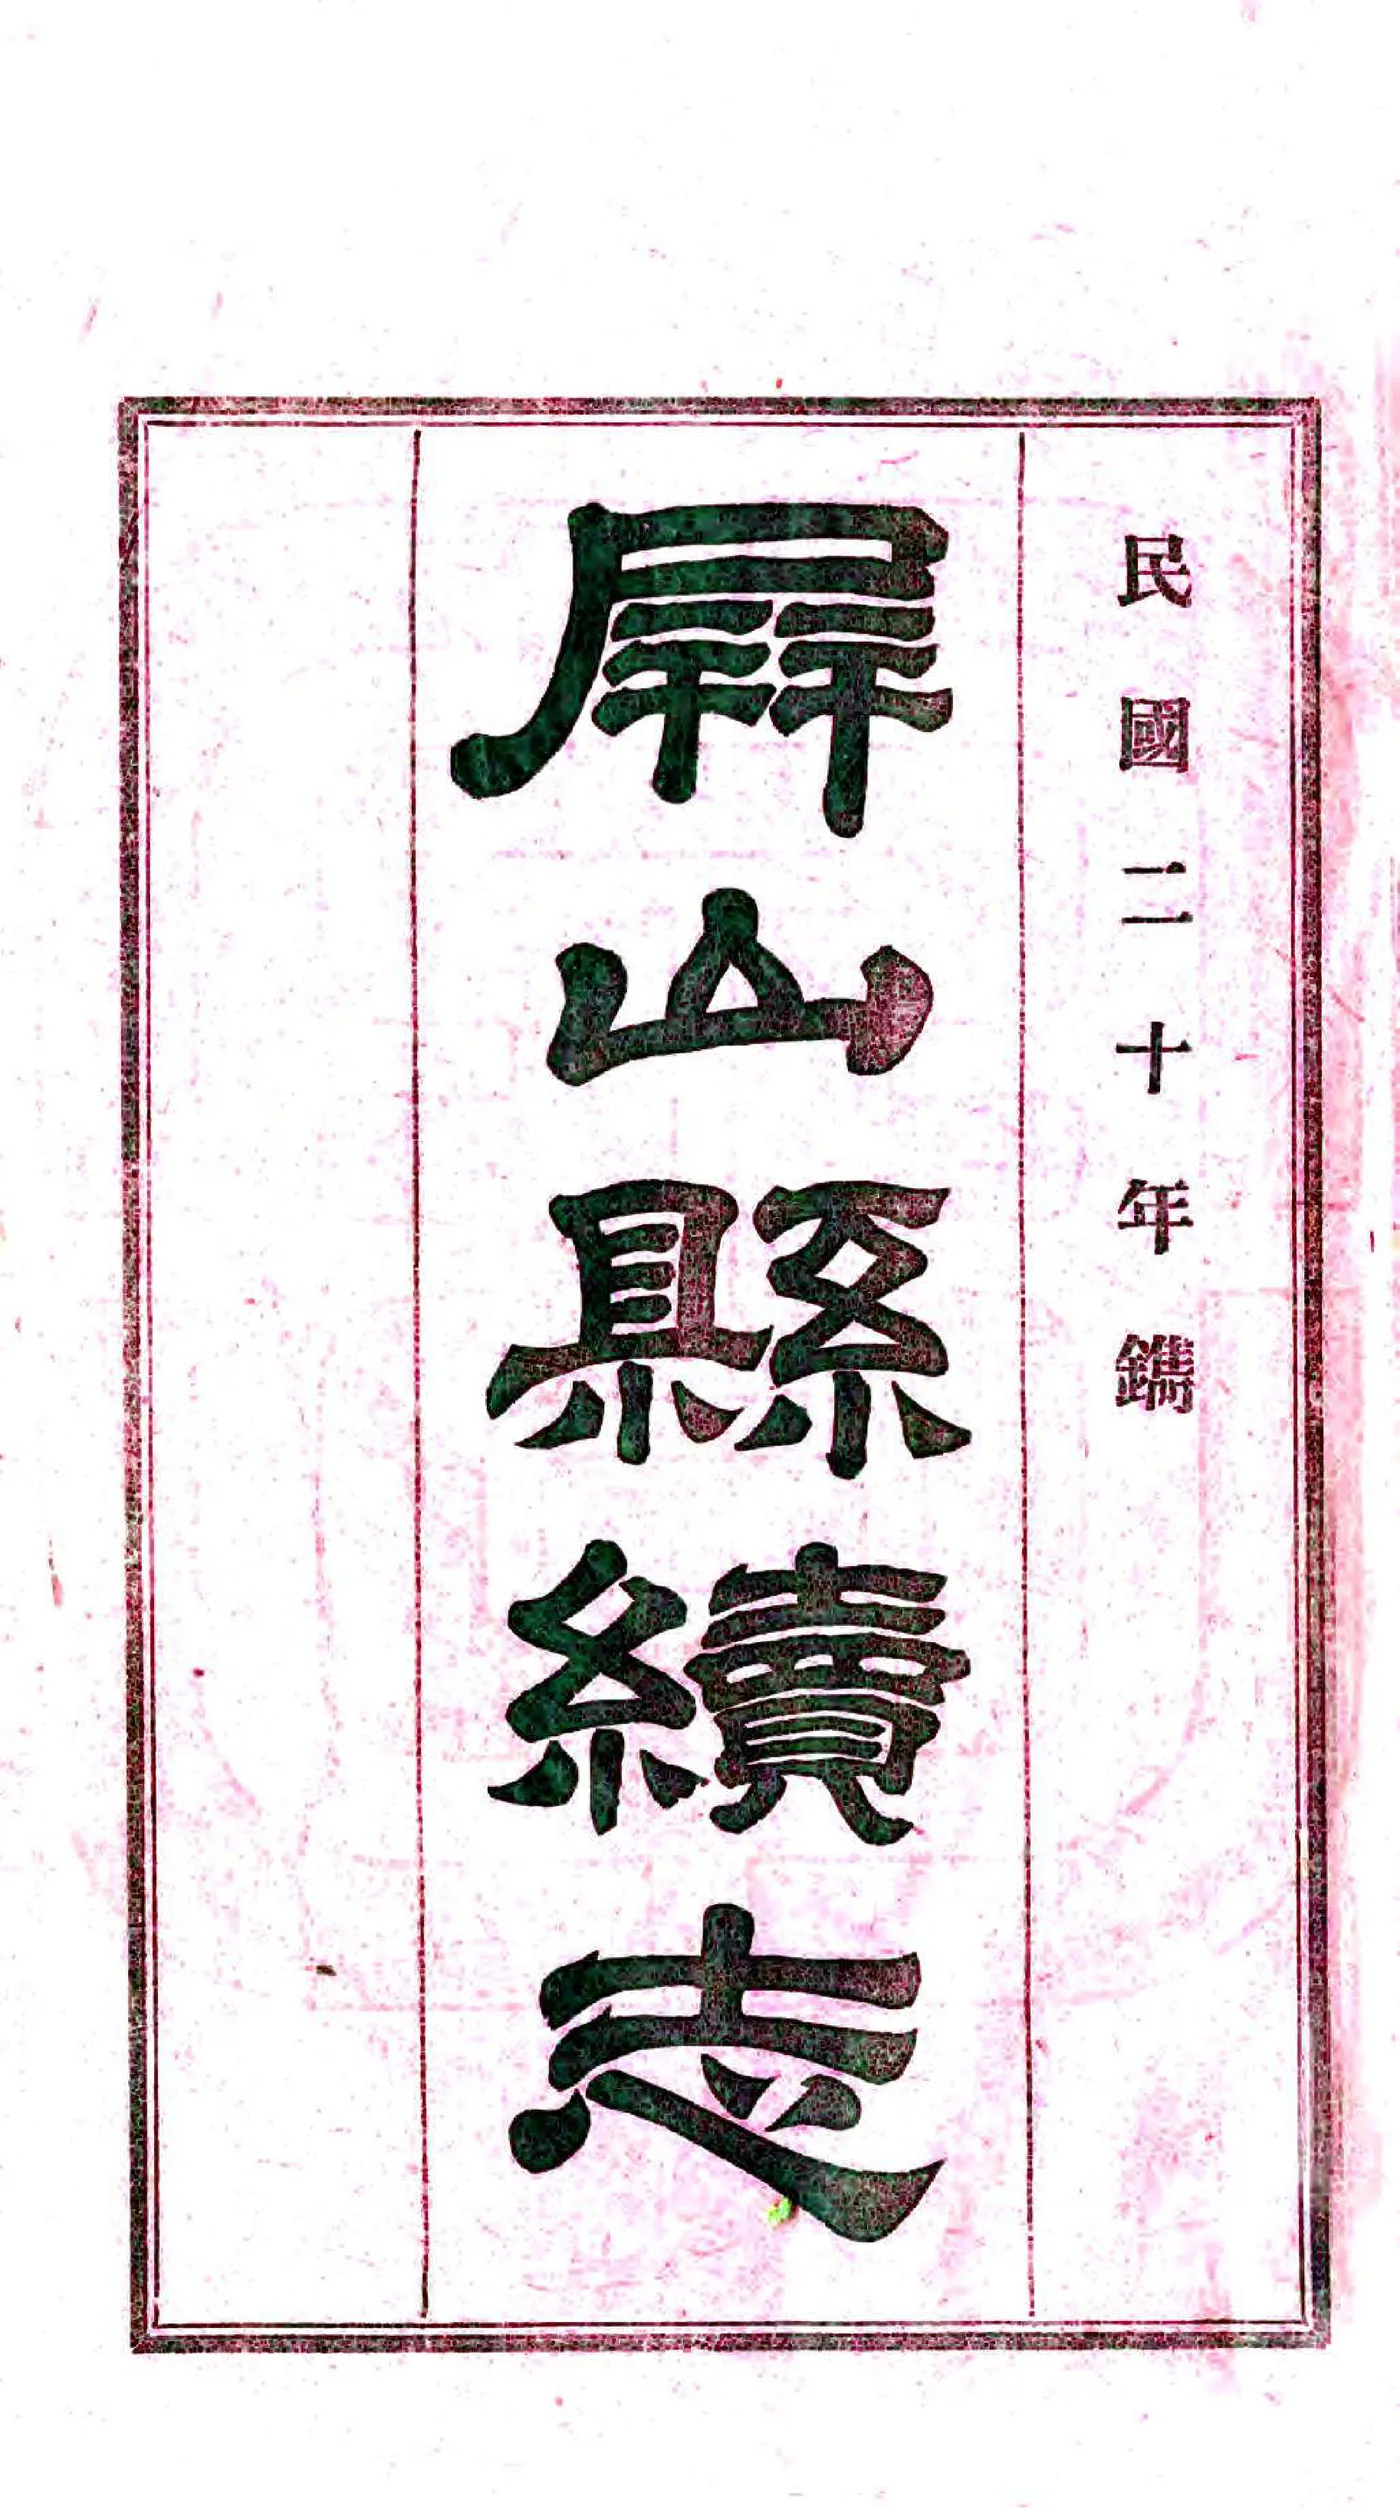 民國二十年鐫
屛山縣續志